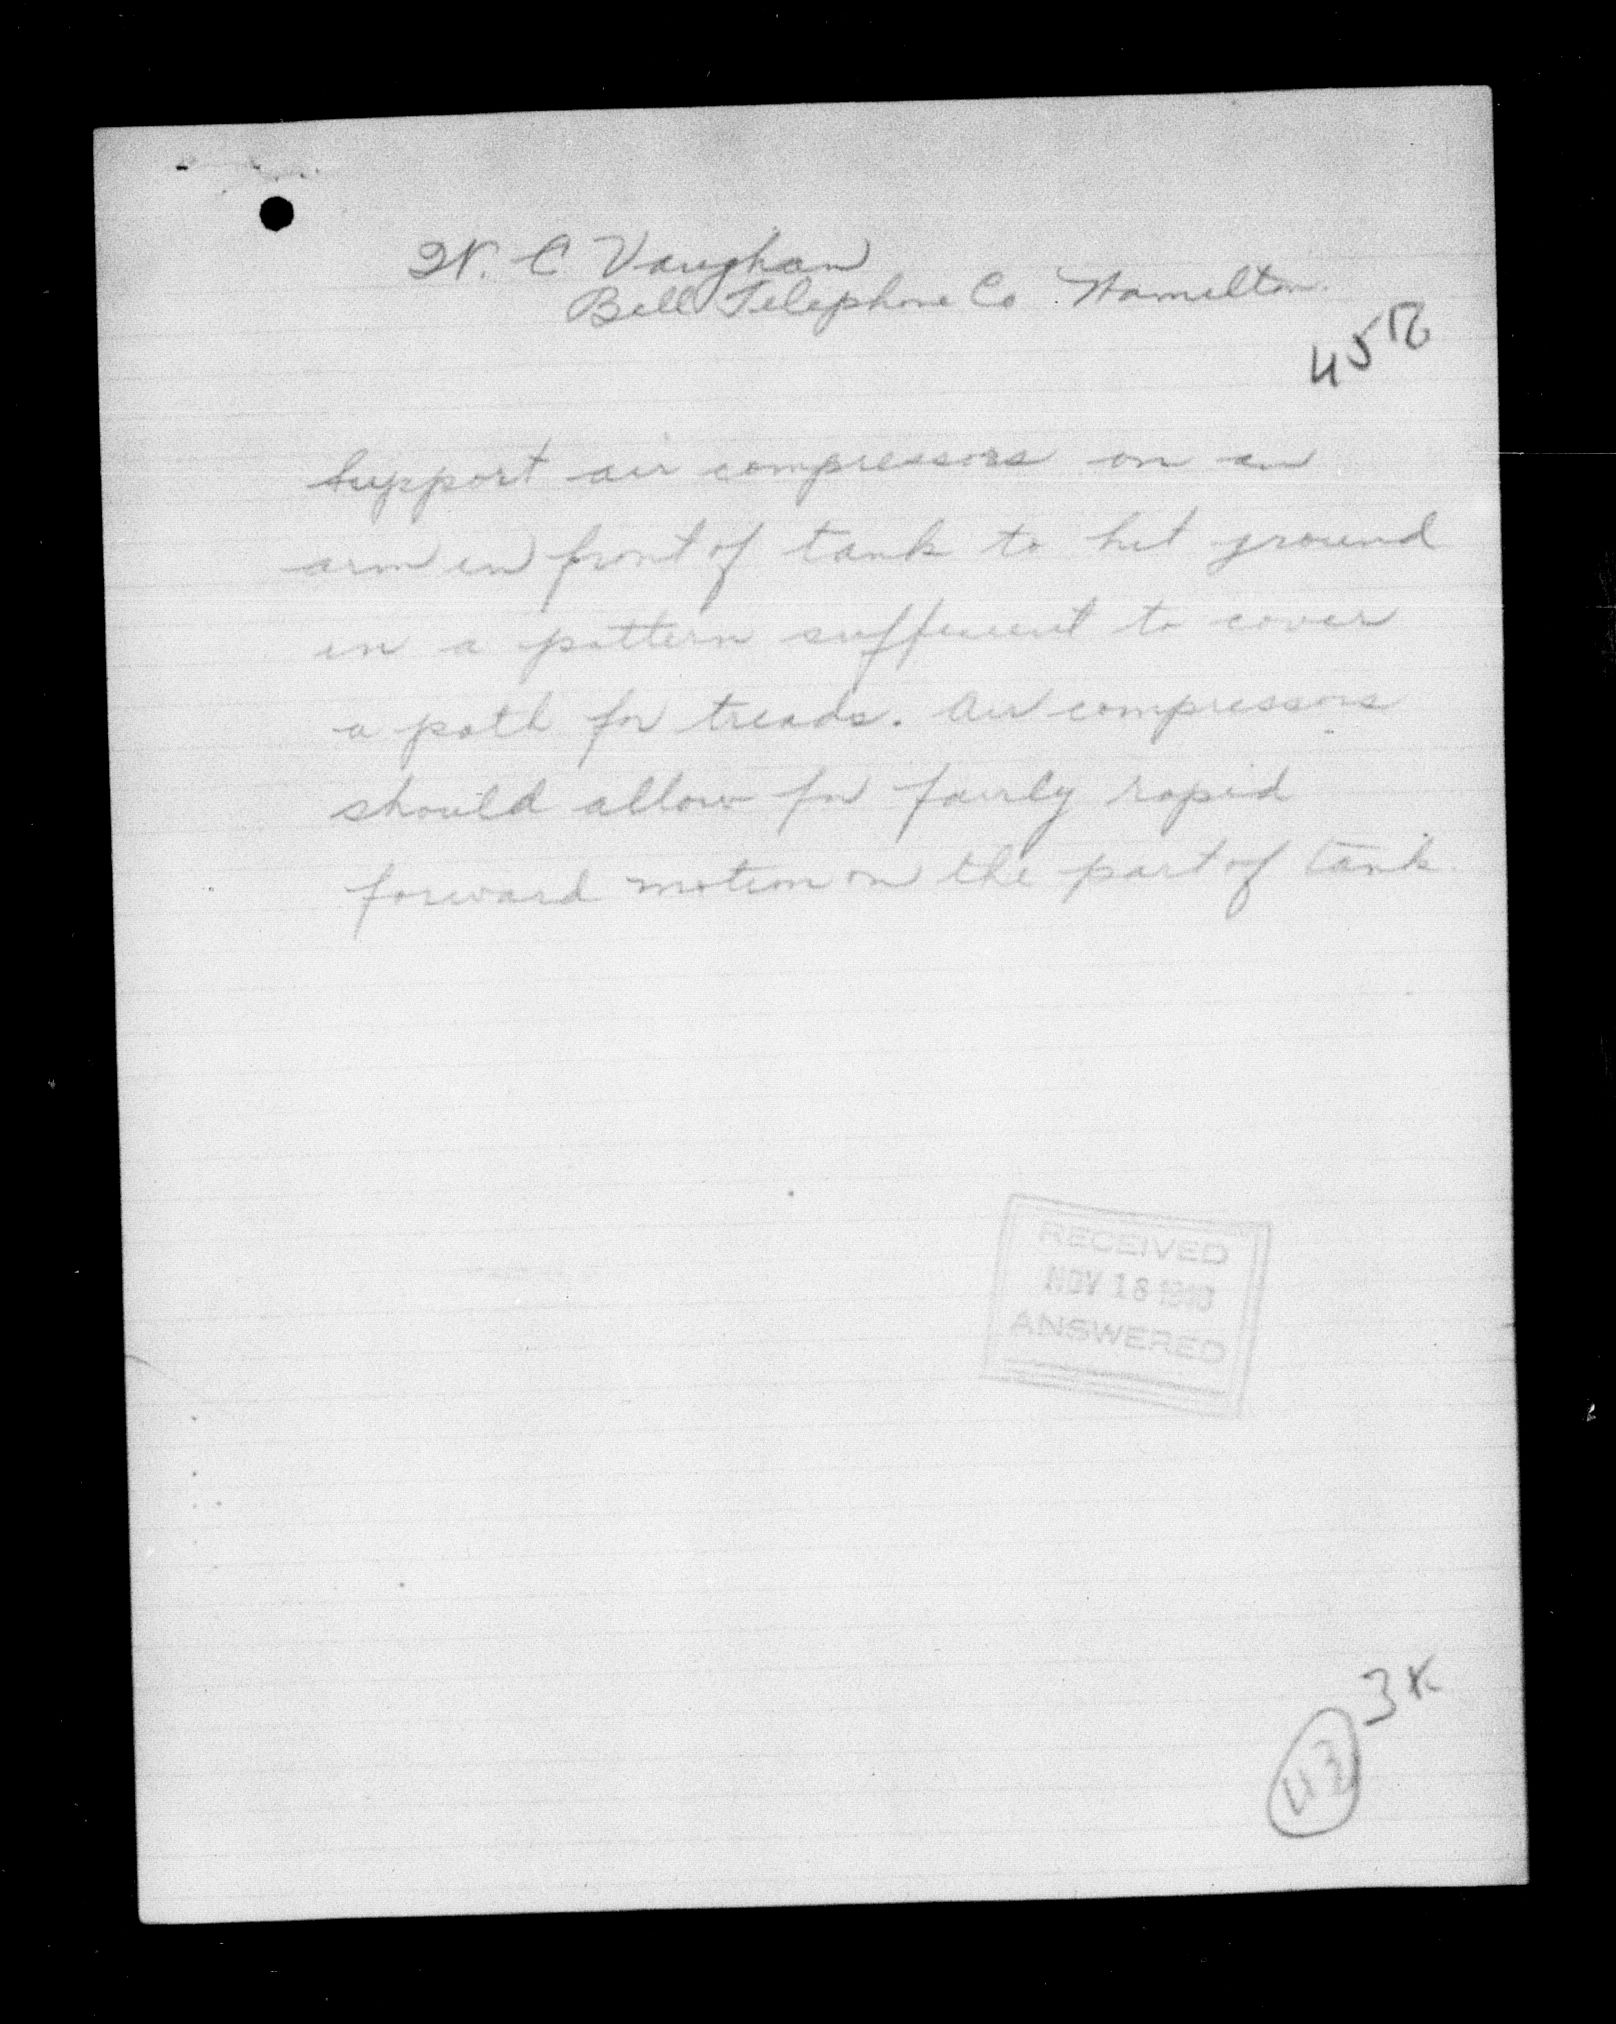 W. C Vaughan
Bell Telephone Co. Hamilton.
45
Support air compressors on an
arm in front of tank to hit ground
in a pattern sufficient to cover
a path for treads. Air compressors
should allow for fairly rapid
forward motion on the part of tank.
RECEIVED
NOV 18 1943
ANSWERED
3x
43